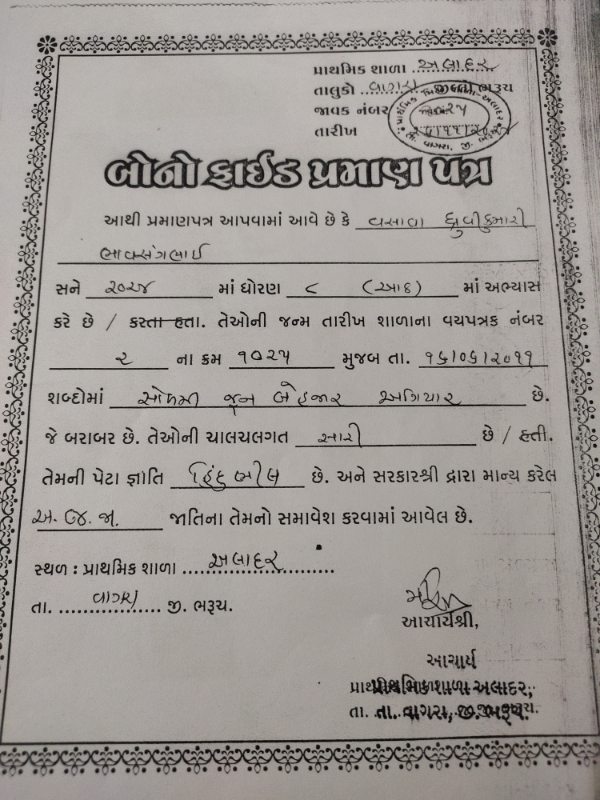 પ્રાથમિક શાળા અલાદર
તાલુકો વાગરા જીલ્લો ભરૂચ
જાવક નંબર ૦૨૫
તારીખ
બોનો ફાઈડ પ્રમાણ પત્ર
આથી પ્રમાણપત્ર આપવામાં આવે છે કે વસાવા ધ્રુવીકુમારી
સને ૨૦૨૪ માં ધોરણ ૮ (આઠ) માં અભ્યાસ
કરે છે / કરતા હતા. તેઓની જન્મ તારીખ શાળાના વયપત્રક નંબર
૨ ના ક્રમ ૧૦૨૫ મુજબ તા. ૧૬/૦૬/૨૦૧૧
શબ્દોમાં સોળમી જૂન બેહજાર અગિયાર છે.
જે બરાબર છે. તેઓની ચાલચલગત સારી છે / હતી.
તેમની પેટા જ્ઞાતિ હિંદુ ભીલ છે. અને સરકારશ્રી દ્વારા માન્ય કરેલ
અ. જ. જા. જાતિના તેમનો સમાવેશ કરવામાં આવેલ છે.
સ્થળ : પ્રાથમિક શાળા અલાદર
તા. વાગરા જી. ભરૂચ.
આચાર્યશ્રી,
આચાર્ય
પ્રાથમિકશાળા અલાદર,
તા. વાગરા, જી.ભરૂચ.